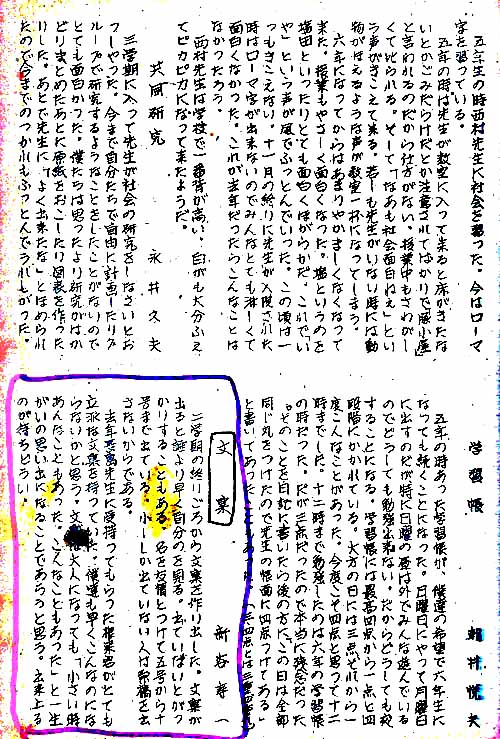 五年生の時西村先生に社会を習った。今はローマ
字を習っている。
五年の時は先生が教室に入って来ると床がきたな
いとかごみだらけだとか注意されてばかりで
と言われるのだから仕方がない。授業中もさわがし
くて叱られる。そして「なあも社会面白ねえ」とい
う声がきこえて来る。若しも先生がいない時には動
物がほえるような声が教室一杯になってしまう。
六年になってからはあまりやかましくなくなって
来た。授業もやさしく面白くなった。塩というのを
塩田といったりとても面白くほがらかだ。これでい
や」という声が風でふっとんでいった。この頃は一
つもきこえない。十一月の終りに先生が入院された
時はローマ字が出来ないのでみんなとても淋しくて
面白くなかった。これが去年だったらこんなことは
なかったろう。
西村先生は学校で一番背が高い。白がも大分ふえ
てピカピカになって来たようだ。
共同研究
永井久夫
三学期に入って先生が社会の研究をしなさいとお
っしゃった。今まで自分たちで自由に計画したりグ
ループで研究するようなことをしたことがないので
とても面白かった。僕たちは思ったより研究がはか
どりまとめたあとに原紙をおこしたり図表を作った
りした。あとで先生に「よく出来たな」とほめられ
たので今までのつかれもふっとんでうれしかった。
学習帳
五年の時あった学習帳が、僕達の希望で六年生に
なっても続くことになった。月曜日にやって月曜日
に出すのだが特に日曜の夜は外でみんな遊んでいる
のでどうしても勉強出来ない。だからどうしても夜
することになる。学習帳には最高四点から一点と四
段階にかかれている。大方の日には三点それから一
度こんなことがあった。今度こそ四点と思って十二
時までした。十二時まで勉強したのは六年の学習帳
の時だった。だが三点だったので本当に残念だった
。そのことを日記に書いたら後の方に、この日は全部
同じ丸をつけたので先生の帳面に四点つけてある」
と書いてあったこともあった。
文集
二学期の終りごろから文集を作り出した。文集が
出ると誰より早く自分のを見る。出ていばいとがっ
かりすることもある。名を友情とつけて五号から十
号まで出ている。少ししか出ていない人は原稿を出
さないからである。
去年先生に受持ってもらった権来君がとても
立派な文集を持っていた。僕達も早くこんなのにな
らないかと思う。文集は大人になっても「小さい時
あんなこともあった。こんなこともあった」と一生
がいの思い出になることであろうと思う。出来上る
のが待ちどうしい。